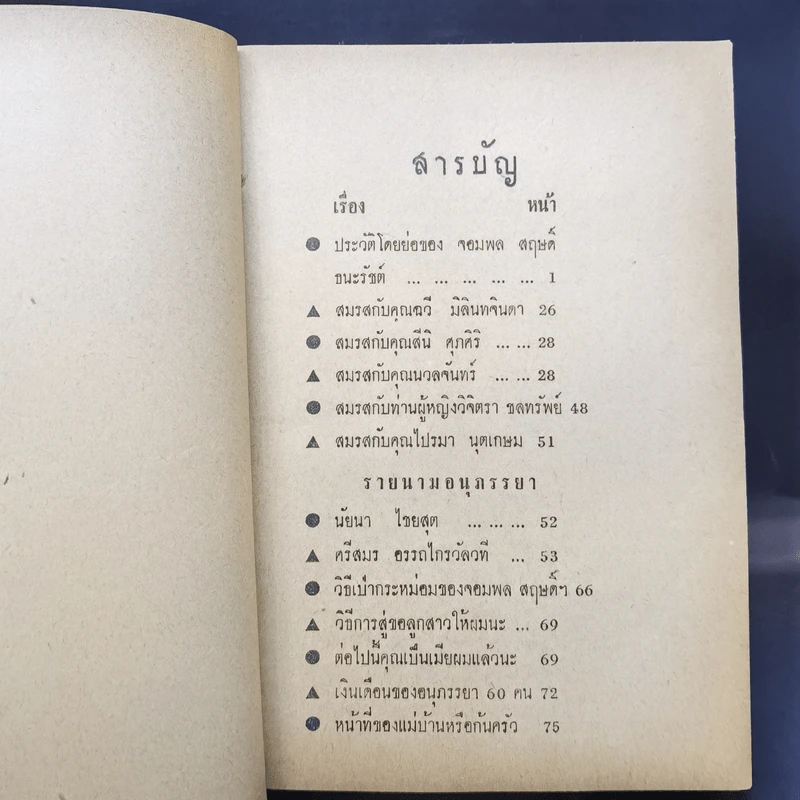 สารบัญ
เรื่อง หน้า
ประวัติโดยย่อของ จอมพล สฤษดิ์
ธนะรัชต์ ... ... ... ... ... 1
สมรสกับคุณฉวี มิลินทจินดา 26
สมรสกับคุณสีนิ ศุภศิริ ... ... 28
สมรสกับคุณนวลจันทร์ ... ... 28
สมรสกับท่านผู้หญิงวิจิตรา ชลทรัพย์ 48
สมรสกับคุณไปรมา นุตเกษม 51
รายนามอนุภรรยา
นัยนา ไชยสุต ... ... ... 52
ศรีสมร อรรถไกรวัลวที ... 53
วิธีเป่ากระหม่อมของจอมพล สฤษดิ์ฯ 66
วิธีการสู่ขอลูกสาวให้ผมนะ ... 69
ต่อไปนี้คุณเป็นเมียผมแล้วนะ 69
เงินเดือนของอนุภรรยา 60 คน 72
หน้าที่ของแม่บ้านหรือก้นครัว 75